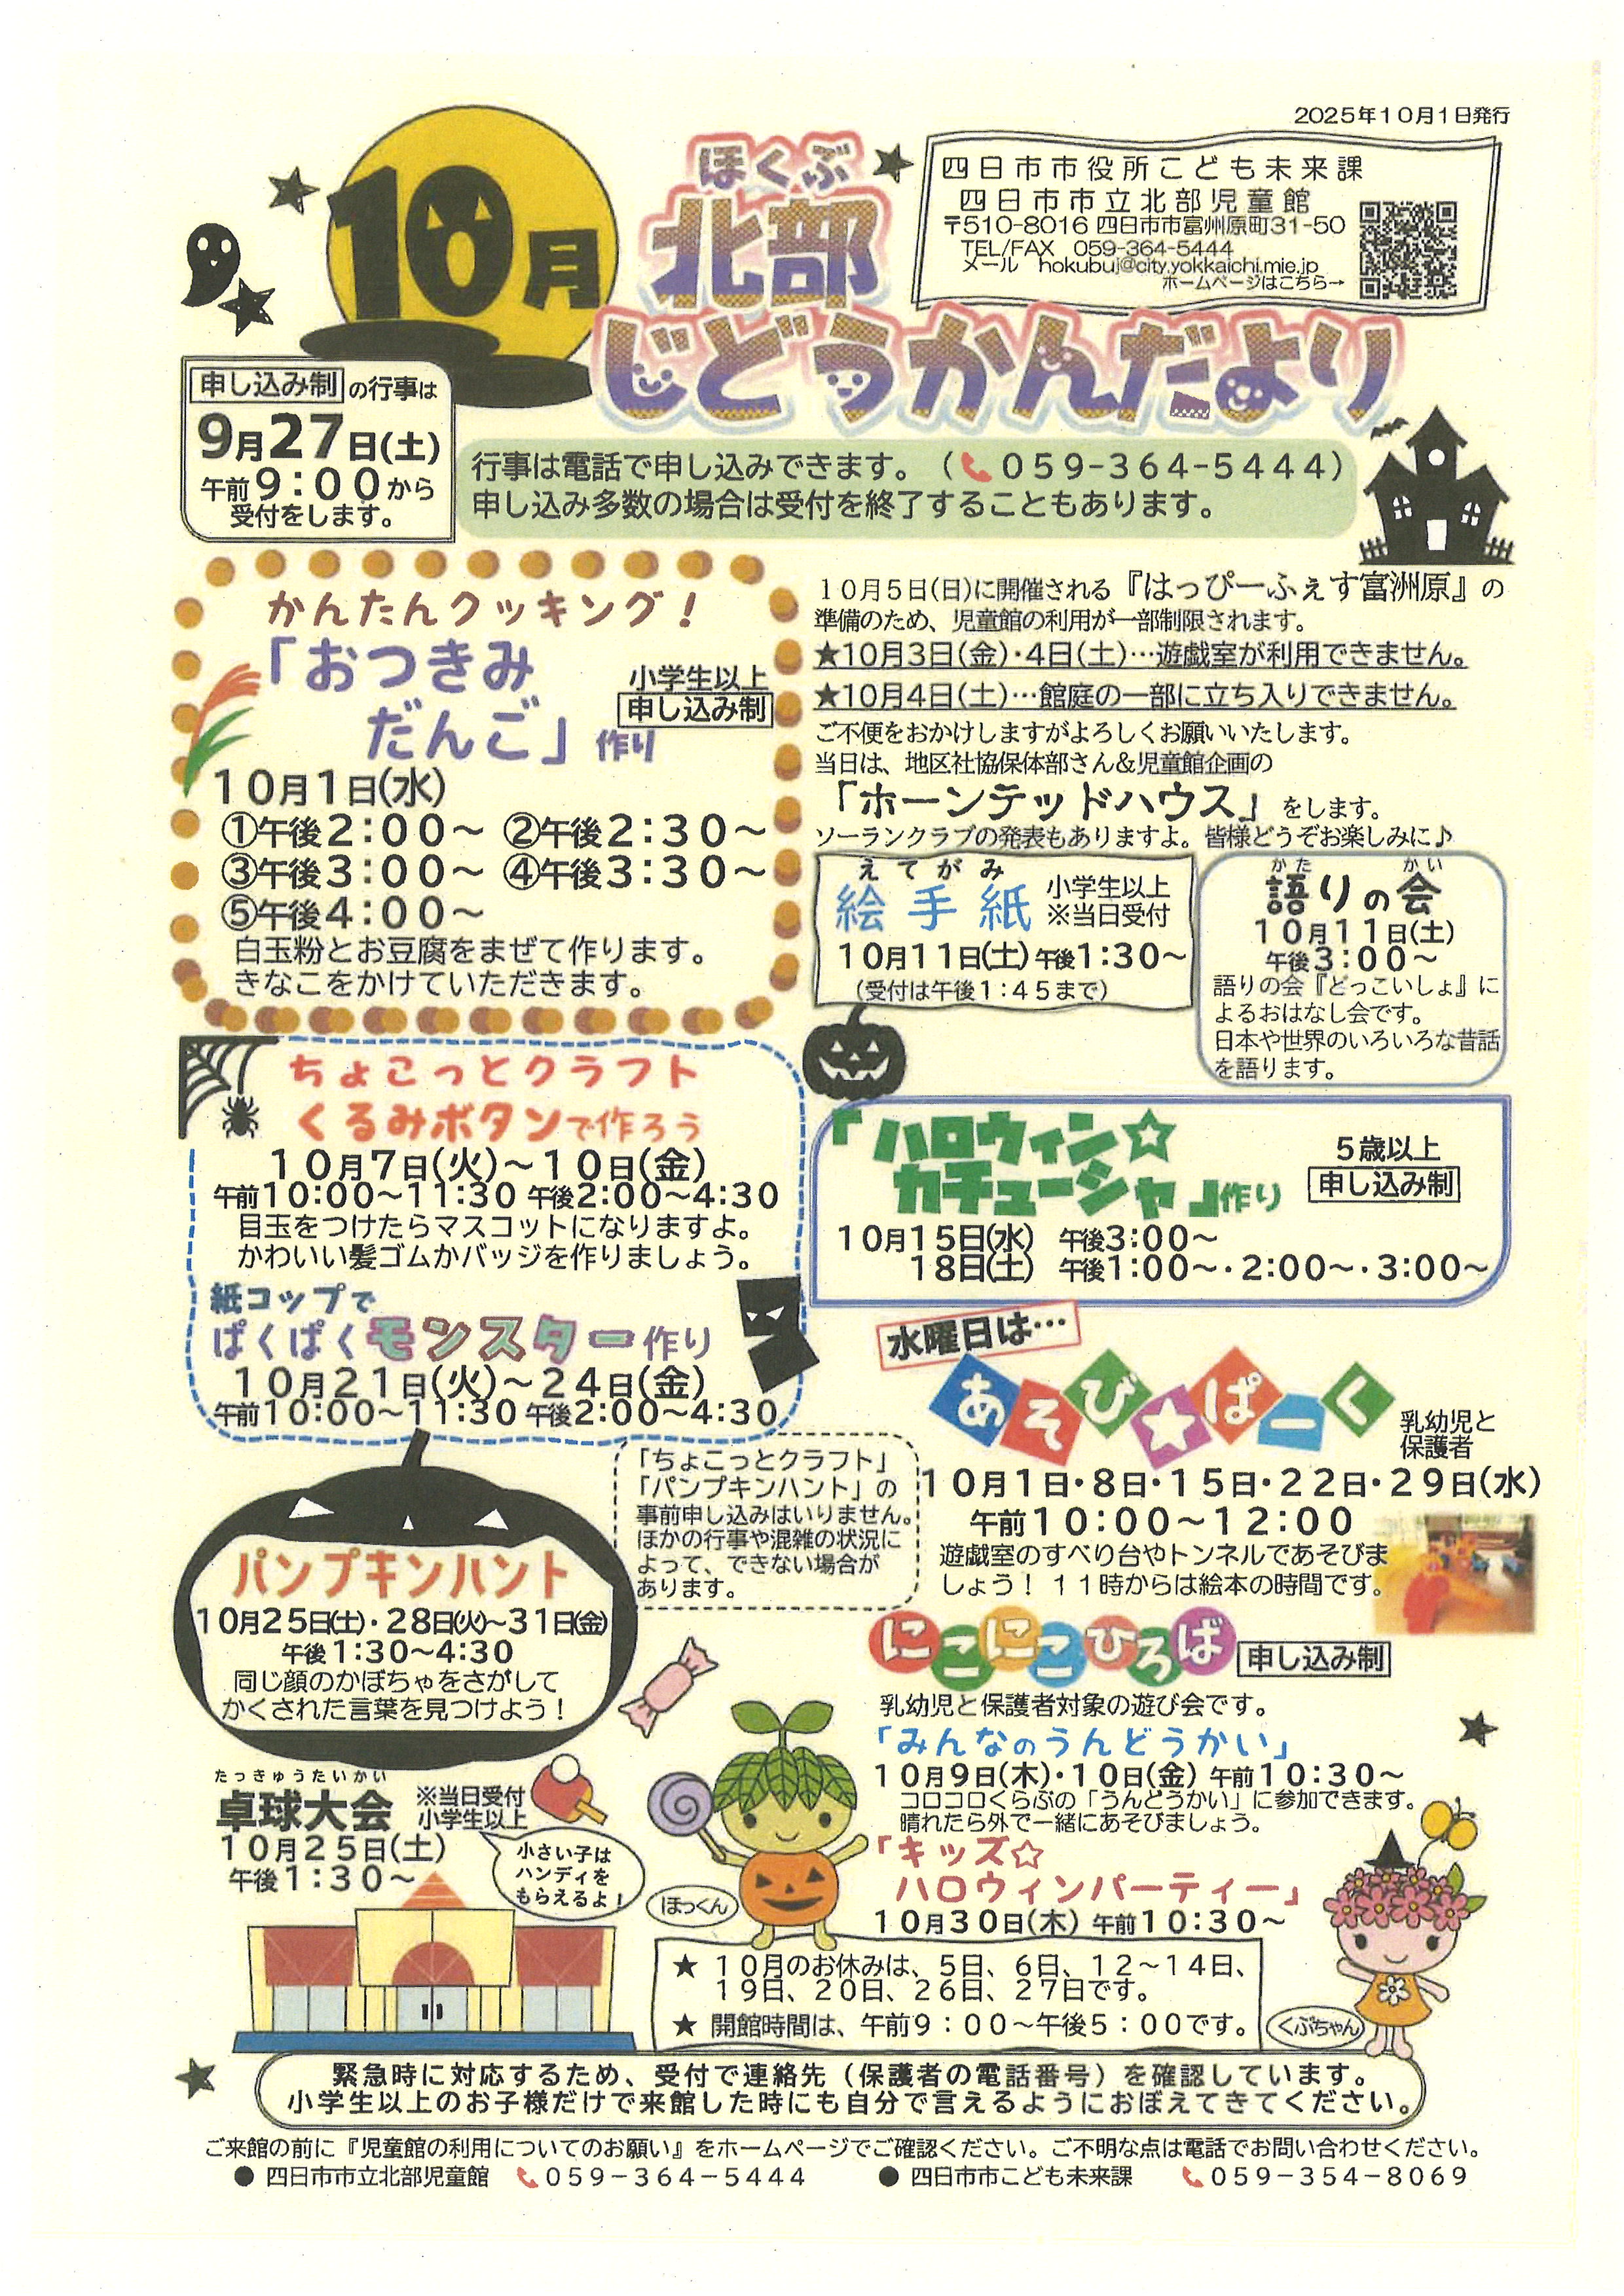 2025年10月1日発行
10月
ほくぶ
北部
じどうかんだより
四日市市役所こども未来課
四日市市立北部児童館
〒510-8016 四日市市富州原町31-50
TEL/FAX 059-364-5444
メール hokubuj@city.yokkaichi.mie.jp
ホームページはこちら→
申し込み制の行事は
9月27日(土)
午前9:00から
受付をします。
行事は電話で申し込みできます。(059-364-5444)
申し込み多数の場合は受付を終了することもあります。
かんたんクッキング！
「おつきみ
だんご」作り
小学生以上
申し込み制
10月1日(水)
①午後2:00～ ②午後2:30～
③午後3:00～ ④午後3:30～
⑤午後4:00～
白玉粉とお豆腐をまぜて作ります。
きなこをかけていただきます。
10月5日(日)に開催される『はっぴーふぇす富洲原』の
準備のため、児童館の利用が一部制限されます。
★10月3日(金)・4日(土)…遊戯室が利用できません。
★10月4日(土)…館庭の一部に立ち入りできません。
ご不便をおかけしますがよろしくお願いいたします。
当日は、地区社協保体部さん＆児童館企画の
「ホーンテッドハウス」をします。
ソーランクラブの発表もありますよ。皆様どうぞお楽しみに♪
えてがみ
絵手紙
小学生以上
※当日受付
10月11日(土)午後1:30～
(受付は午後1:45まで)
かた かい
語りの会
10月11日(土)
午後3:00～
語りの会『どっこいしょ』に
よるおはなし会です。
日本や世界のいろいろな昔話
を語ります。
ちょこっとクラフト
くるみボタンで作ろう
10月7日(火)～10日(金)
午前10:00～11:30 午後2:00～4:30
目玉をつけたらマスコットになりますよ。
かわいい髪ゴムかバッジを作りましょう。
紙コップで
ぱくぱくモンスター作り
10月21日(火)～24日(金)
午前10:00～11:30 午後2:00～4:30
「ハロウィン☆
カチューシャ」作り
5歳以上
申し込み制
10月15日(水) 午後3:00～
18日(土) 午後1:00～・2:00～・3:00～
水曜日は…
あそび★ぱーく
乳幼児と
保護者
10月1日・8日・15日・22日・29日(水)
午前10:00～12:00
遊戯室のすべり台やトンネルであそびま
しょう！ 11時からは絵本の時間です。
「ちょこっとクラフト」
「パンプキンハント」の
事前申し込みはいりません。
ほかの行事や混雑の状況に
よって、できない場合が
あります。
パンプキンハント
10月25日(土)・28日(火)～31日(金)
午後1:30～4:30
同じ顔のかぼちゃをさがして
かくされた言葉を見つけよう！
にこにこひろば
申し込み制
乳幼児と保護者対象の遊び会です。
「みんなのうんどうかい」
10月9日(木)・10日(金) 午前10:30～
コロコロくらぶの「うんどうかい」に参加できます。
晴れたら外で一緒にあそびましょう。
「キッズ☆
ハロウィンパーティー」
10月30日(木) 午前10:30～
たっきゅうたいかい
卓球大会
※当日受付
小学生以上
10月25日(土)
午後1:30～
小さい子は
ハンディを
もらえるよ！
ほっくん
くぶちゃん
★ 10月のお休みは、5日、6日、12～14日、
19日、20日、26日、27日です。
★ 開館時間は、午前9：00～午後5：00です。
緊急時に対応するため、受付で連絡先（保護者の電話番号）を確認しています。
小学生以上のお子様だけで来館した時にも自分で言えるようにおぼえてきてください。
ご来館の前に『児童館の利用についてのお願い』をホームページでご確認ください。ご不明な点は電話でお問い合わせください。
● 四日市市立北部児童館 059－364－5444 ● 四日市市こども未来課 059－354－8069